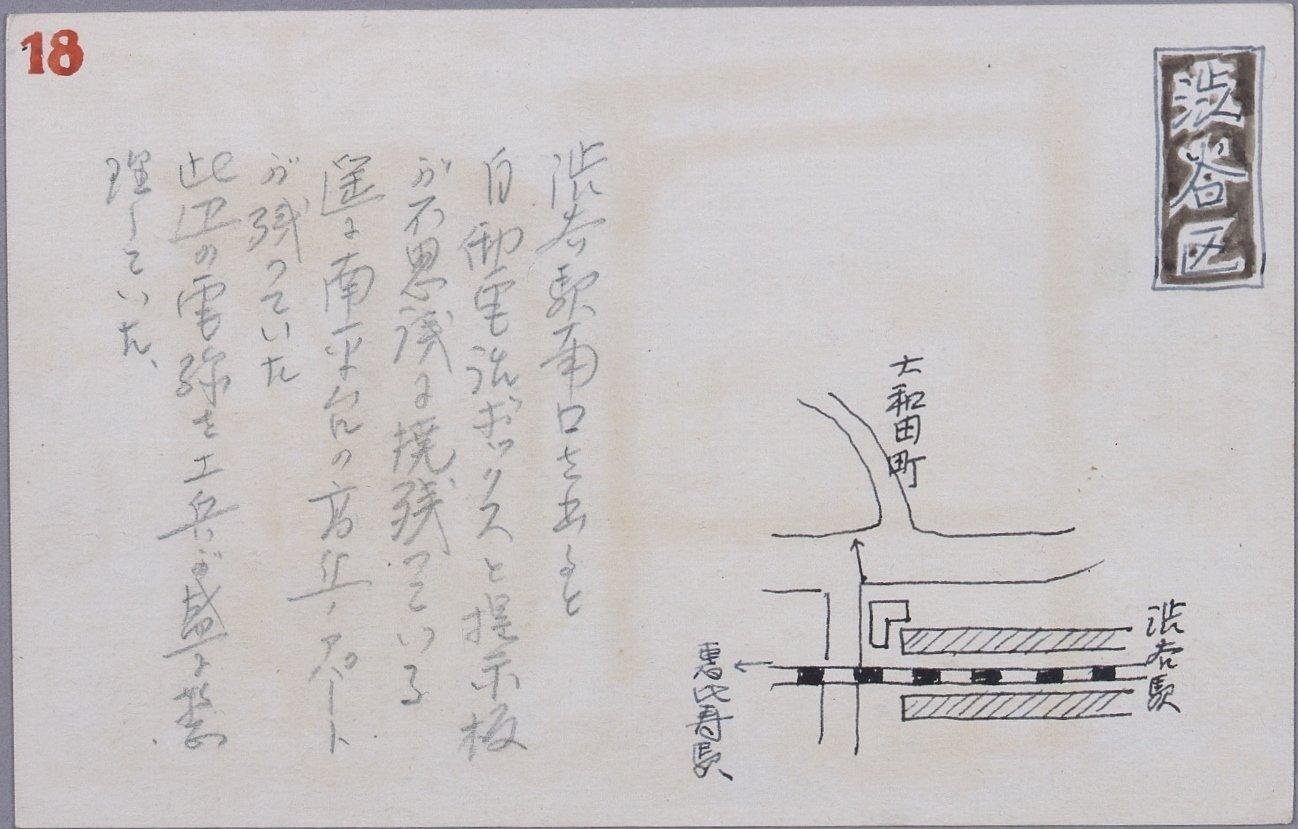 18
渋谷区
大和田町
渋谷駅
恵比寿駅
渋谷駅南口を出ると
自働電話ボックスと提示板
が不思議に焼残っている
遥に南平台の高丘ノアパート
が残っていた
此辺の電線を工兵が盛に整
理していた、